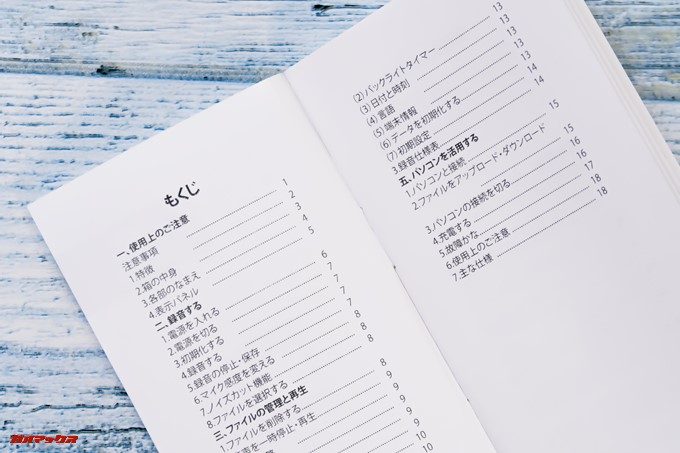 もくじ
一、使用上のご注意
注意事項 1
1.特徴 2
2.箱の中身 3
3.各部のなまえ 4
4.表示パネル 5
二、録音する
1.電源を入れる 6
2.電源を切る 7
3.初期化する 7
4.録音する 7
5.録音の停止・保存 8
6.マイク感度を変える 8
7.ノイズカット機能
8.ファイルを選択する 8
三、ファイルの管理と再生
1.ファイルを削除する 9
声を一時停止・再生 9
録音 10
13
(2)バックライトタイマー 13
(3)日付と時刻 13
(4)言語 13
(5)端末情報 13
(6)データを初期化する 14
(7)初期設定 14
3.録音仕様表
五、パソコンを活用する
1.パソコンと接続 15
2.ファイルをアップロード・ダウンロード 15
3.パソコンの接続を切る 16
4.充電する 16
5.故障かな 17
6.使用上のご注意 18
7.主な仕様 18
ガルマックス